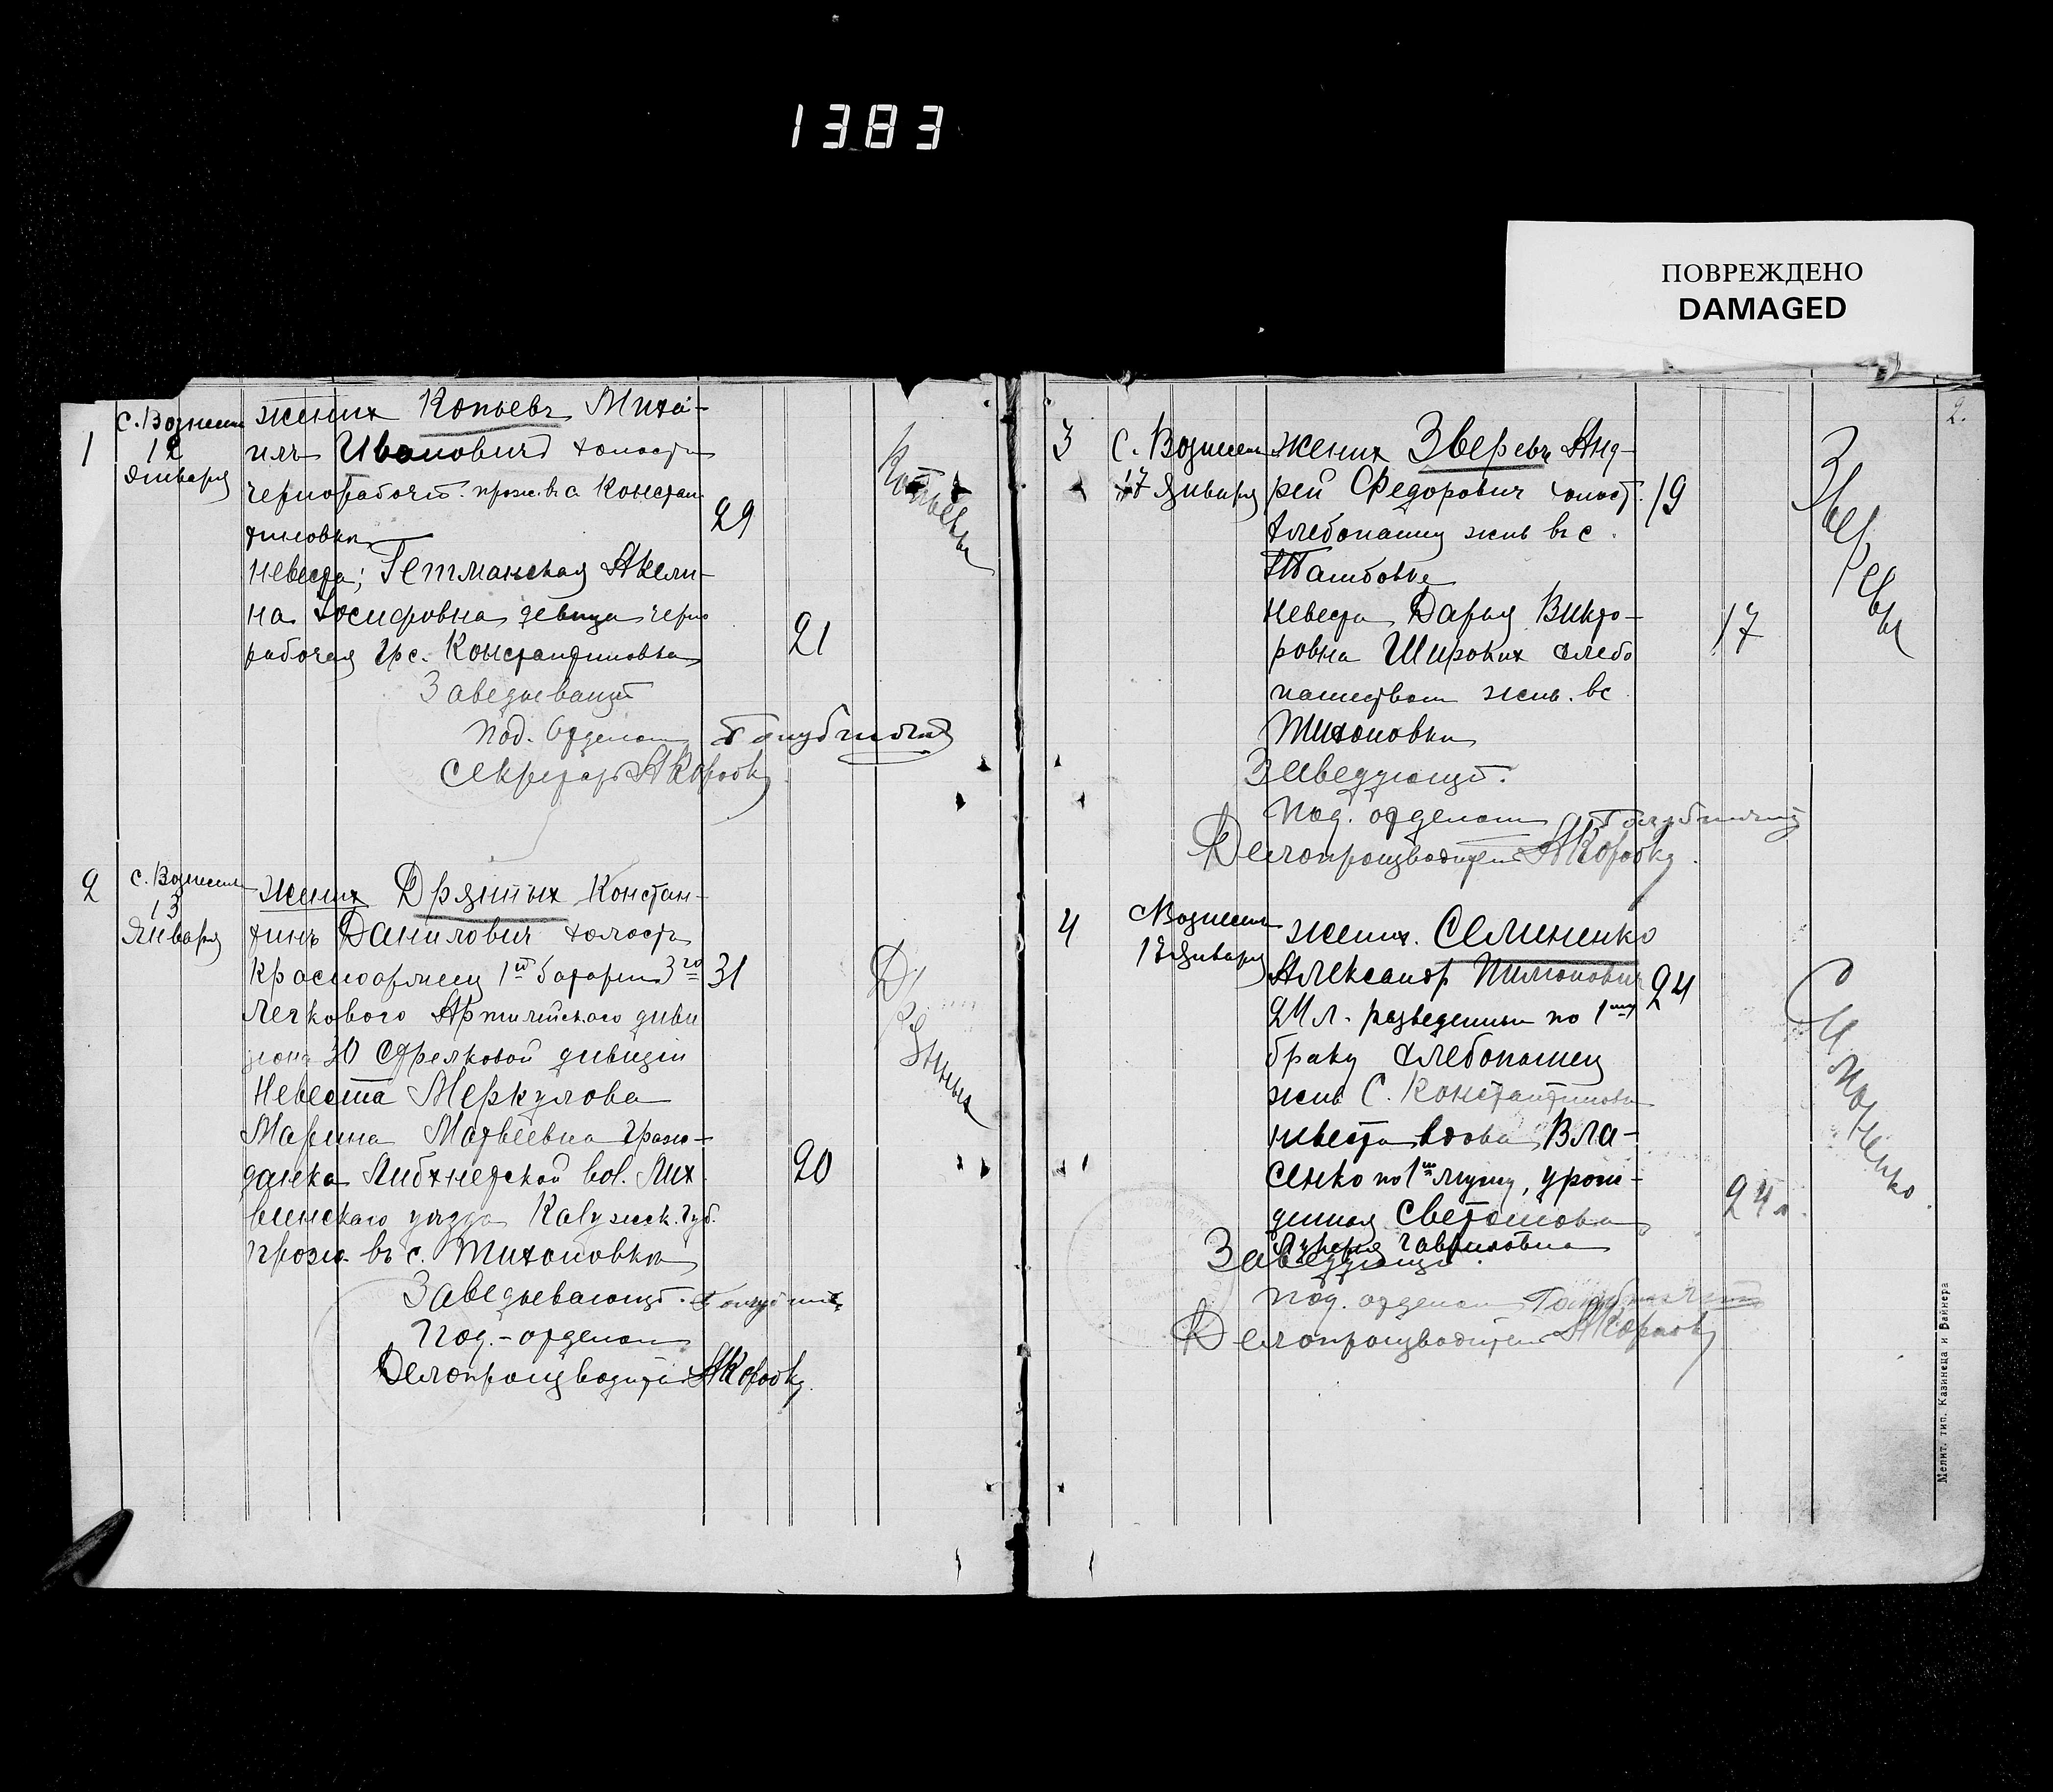 1383
ПОВРЕЖДЕНО
DAMAGED
1
с. Вознесен
12
января
жених Копьевъ Миха-
илъ Иванович холост
чернорабочiй. прож. въ с. Констан
тиновка
29
невеста; Гетманская Акели-
на Iосифовна девица черно
рабочая гр с. Константиновка
21
Заведывающ
под. Отделом Голубничий
Секретарь А Коробка
Копьевы
2
с. Вознесен
13
Января
жених Дрянных Констан-
тинъ Данилович холост
красноармеец 1й батареи 3го
31
легкового Артилейского диви
зiона 30 Стрелковой дивизiи
Невеста Меркулова
Марина Матвеевна граж-
данка Либхнетской вол. Лих
20
винскаго уезда Калужск. губ.
прож. въ с. Тихоновка
Заведывающ. Голубнич
Под.-отделом
Делопроизводитель А Коробка
Дрянных
2.
3
с. Вознесен
17 Января
жених Зверевъ Анд-
рей Федорович холост.
19
хлебопашец жив въ с.
Тамбовке
невеста Дарья Викто-
17
ровна Широких хлебо
пашеством жив. вс
Тихоновка
Заведующ.
Под. отделом Голубничий
Делопроизводитель А Коробка
Зверевы
4
с Вознесен
Января
жених. Семененко
Александр Пимонович
24
24 л. разведенный по 1му
браку хлебопашец
жив с. Константиновка
невеста вдова Вла-
сенко по 1му мужу, урож-
денная Светошова
24 л.
Гавриловна
Заведующ.
под. отделом Голубничий
Делопроизводитель А Коробка
Семененко
Мелит. тип. Казинеца и Вайнера